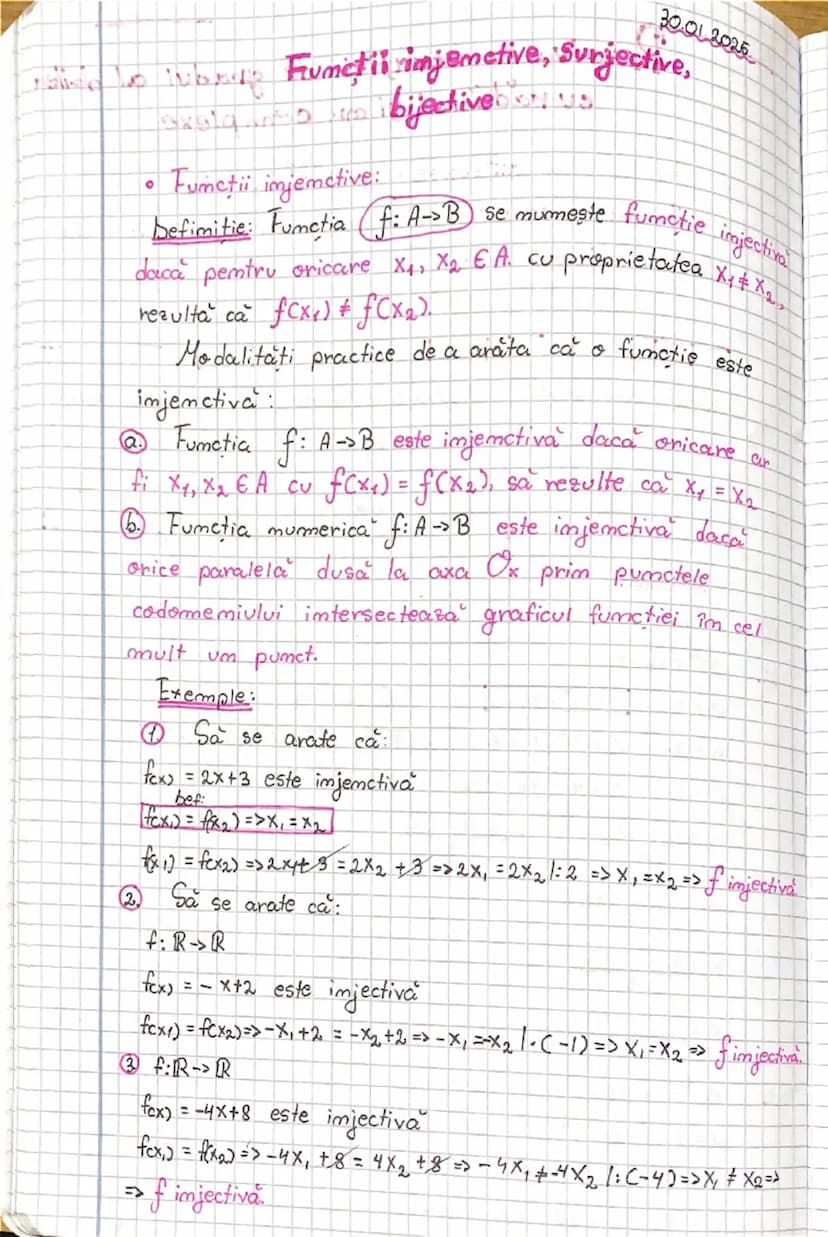 30.01.2025
Funcții injenctive, surjective,
bijective
• Funcții injenctive:
Definiție: Funcția f: A->B se numește funcție injectivă
dacă pentru oricare x₁, x₂ ∈ A. cu proprietatea x₁ ≠ x₂,
rezultă că f(x₁) ≠ f(x₂).
Modalități practice de a arăta că o funcție este
injenctivă:
a. Funcția f: A->B este injenctivă dacă oricare ar
fi x₁, x₂ ∈ A cu f(x₁) = f(x₂), să rezulte că x₁ = x₂
b. Funcția numerică f: A->B este injenctivă dacă
orice paralelă dusă la axa Ox prin punctele
codomeniului intersectează graficul funcției în cel
mult un punct.
Exemple:
1 Să se arate că:
f(x) = 2x+3 este injenctivă
Def:
f(x₁) = f(x₂) => x₁ = x₂
f(x₁) = f(x₂) => 2x₁+3 = 2x₂ +3 => 2x₁ = 2x₂ /:2 => x₁ = x₂ => f injectivă
2. Să se arate că:
f: ℝ->ℝ
f(x) = -x+2 este injectivă
f(x₁) = f(x₂) => -x₁+2 = -x₂+2 => -x₁ = -x₂ /·(-1) => x₁ = x₂ => f injectivă.
3 f: ℝ->ℝ
f(x) = -4x+8 este injectivă
f(x₁) = f(x₂) => -4x₁ +8 = 4x₂ +8 => -4x₁ ≠ -4x₂ /:(-4) => x₁ ≠ x₂ =>
=> f injectivă.